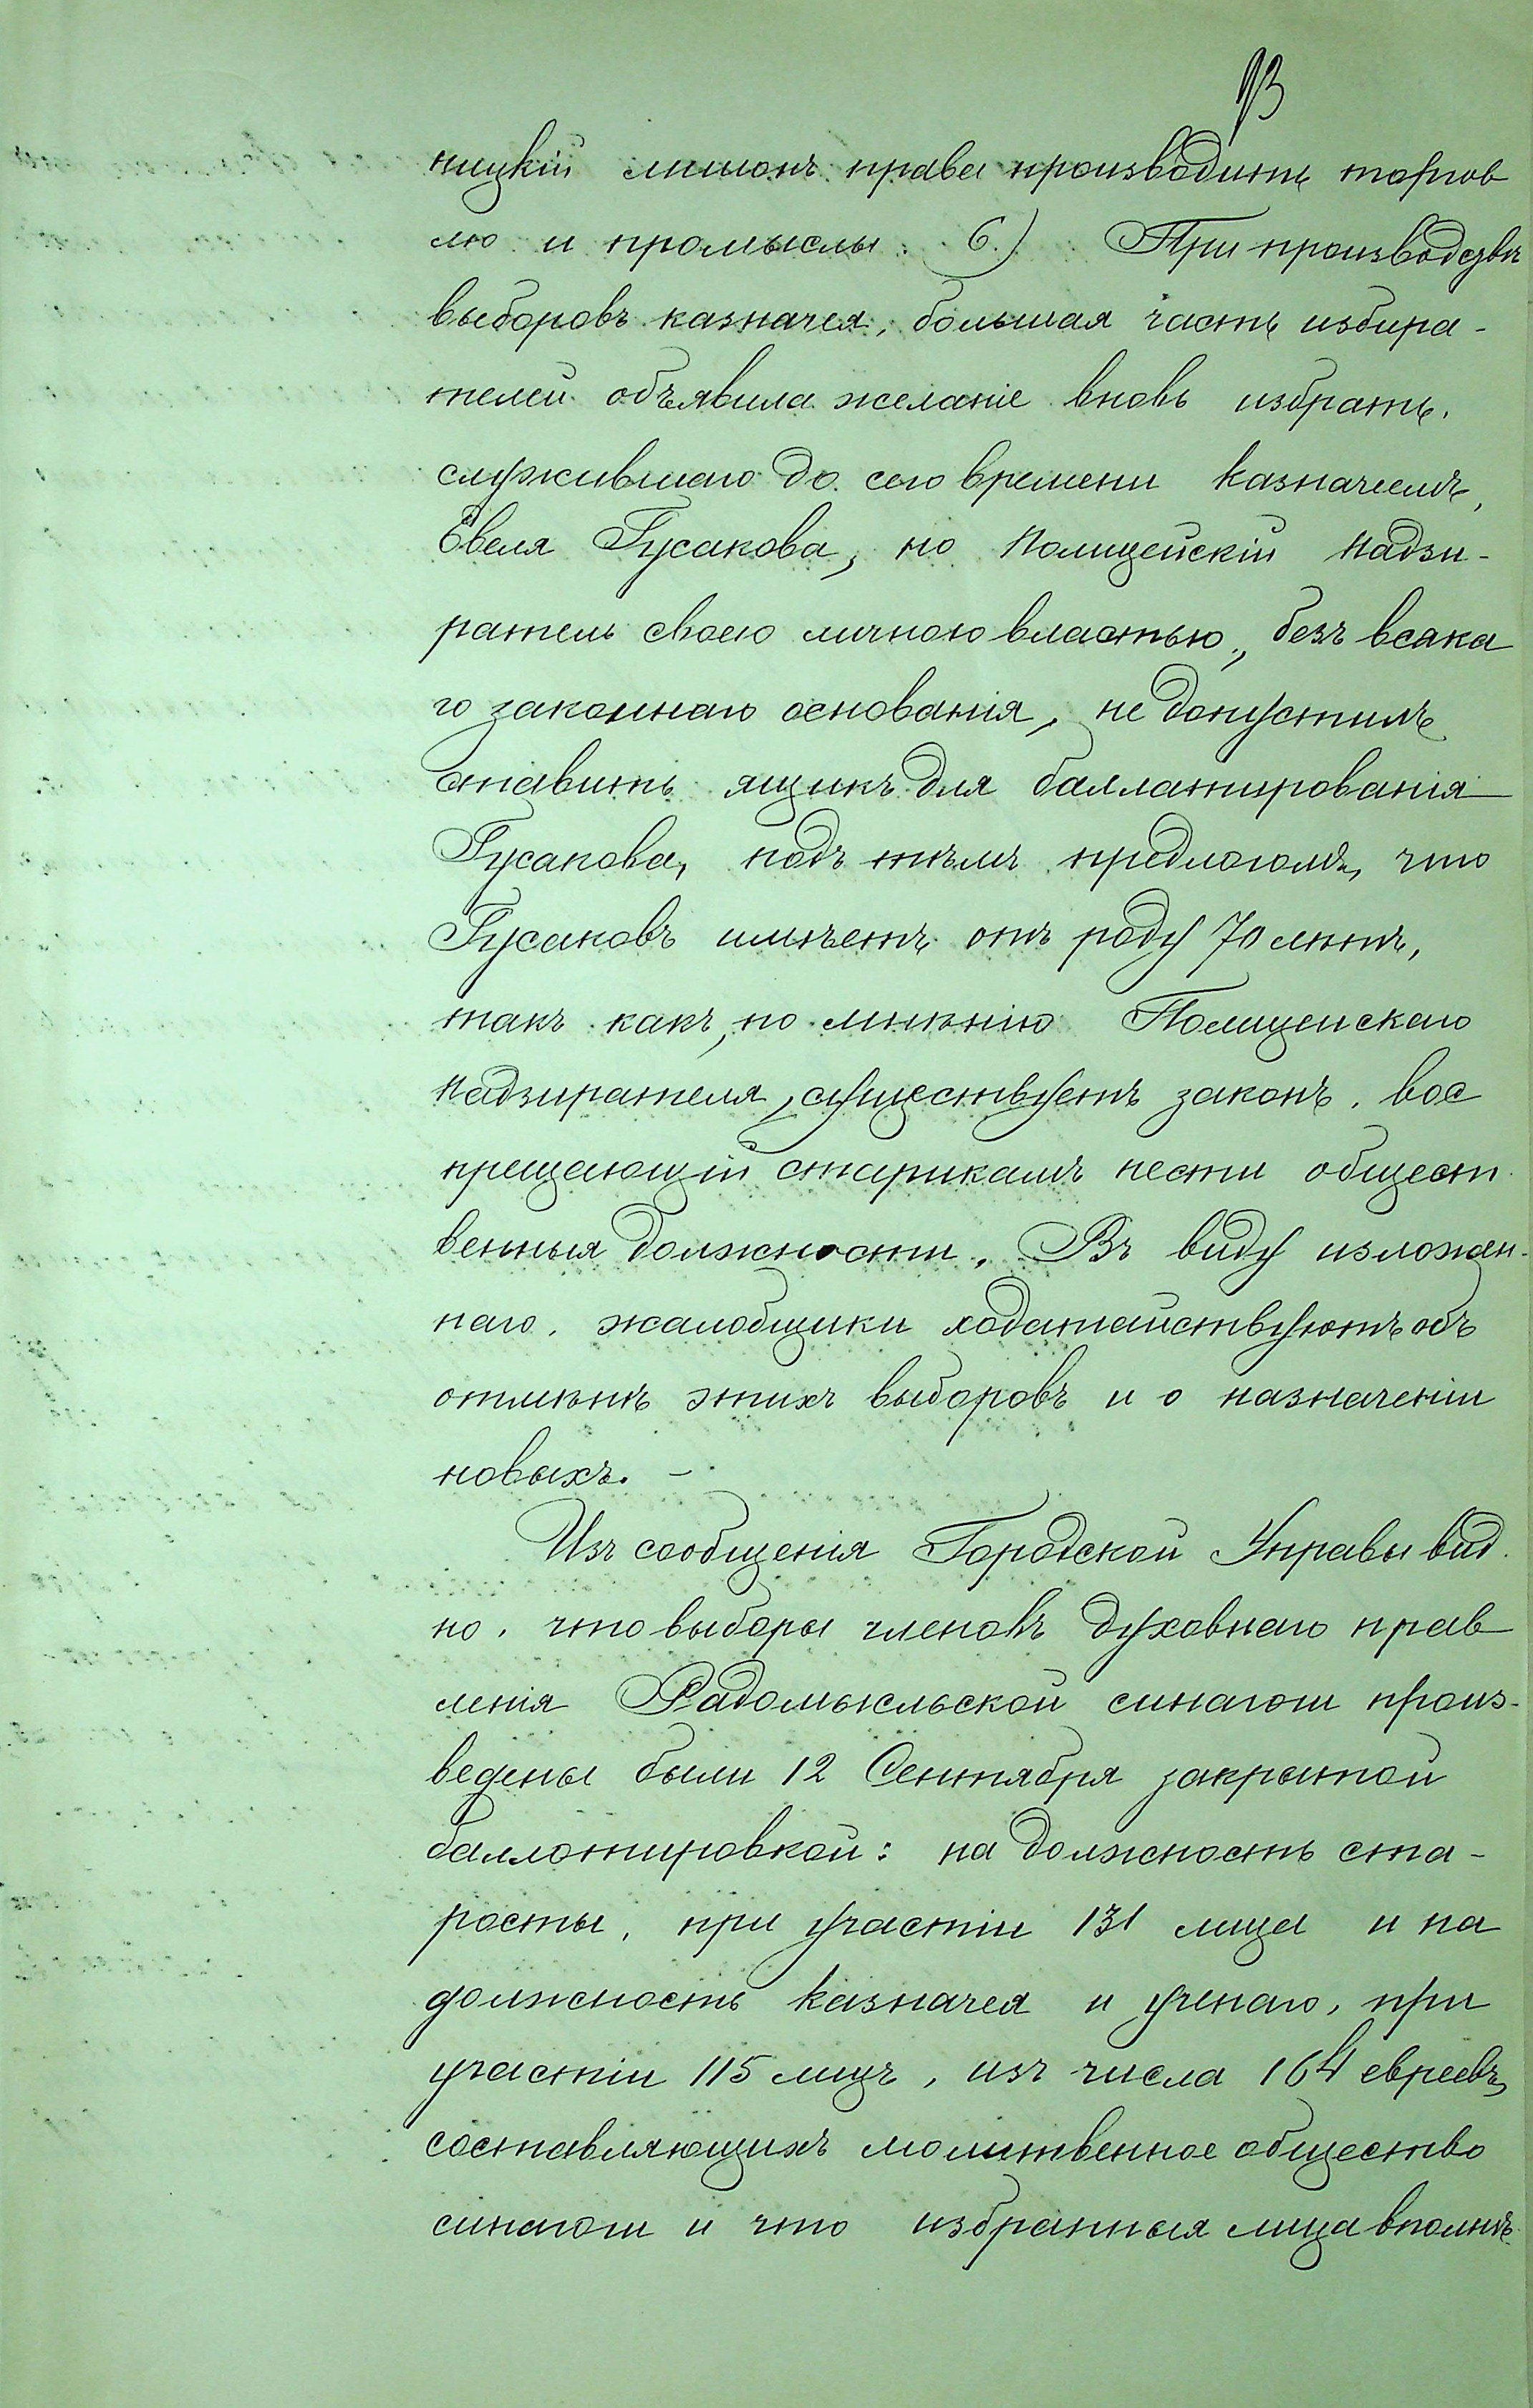 93
ницкій лишонъ права производить торгов
лю и промыслы. 6.) При производствѣ
выборовъ казначея, большая часть избира-
телей объявила желаніе вновь избрать,
служившаго до сего времени казначеемъ,
Евеля Гусакова, но Полицейскій Надзи-
ратель своею личною властью, безъ всяка
го законнаго основанія, не допустилъ
ставить ящикъ для баллатированія
Гусакова, подъ тѣмъ предлогомъ, что
Гусаковъ имѣетъ отъ роду 70 лѣтъ,
такъ какъ, по мнѣнію Полицейскаго
Надзирателя, существуетъ законъ, вос
прещающій старикамъ нести общест
венныя должности. Въ виду изложен-
наго, жалобщики ходатайствуютъ объ
отмѣнѣ этихъ выборовъ и о назначеніи
новыхъ. -
Изъ сообщенія Городской Управы вид
но, что выборы членовъ духовнаго прав
ленія Радомысльской синагоги произ-
ведены были 12 Сентября закрытой
баллотировкой: на должность ста-
росты, при участіи 131 лица и на
должность казначея и ученаго, при
участіи 115 лицъ, изъ числа 164 евреевъ,
составляющихъ молитвенное общество
синагоги и что избранныя лица вполнѣ